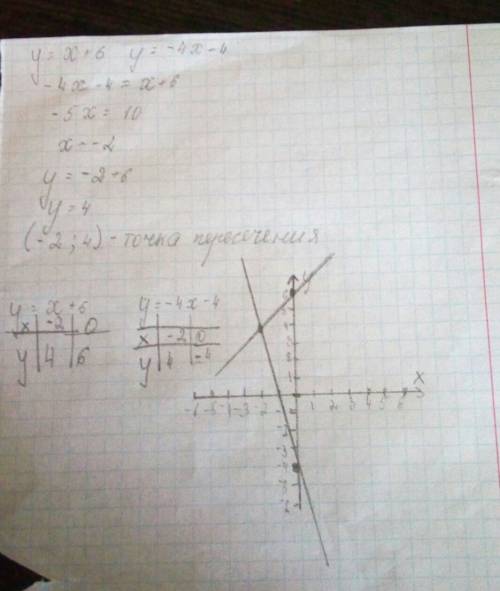 y = x+6 y = -4x-4
-4x-4 = x+6
-5x = 10
x = -2
y = -2+6
y = 4
(-2; 4) - точка пересечения
y = x+6
x -2 0
y 4 6
y = -4x-4
x -2 0
y 4 -4
y
x
-6 -5 -4 -3 -2 1 2 3 4 5 6